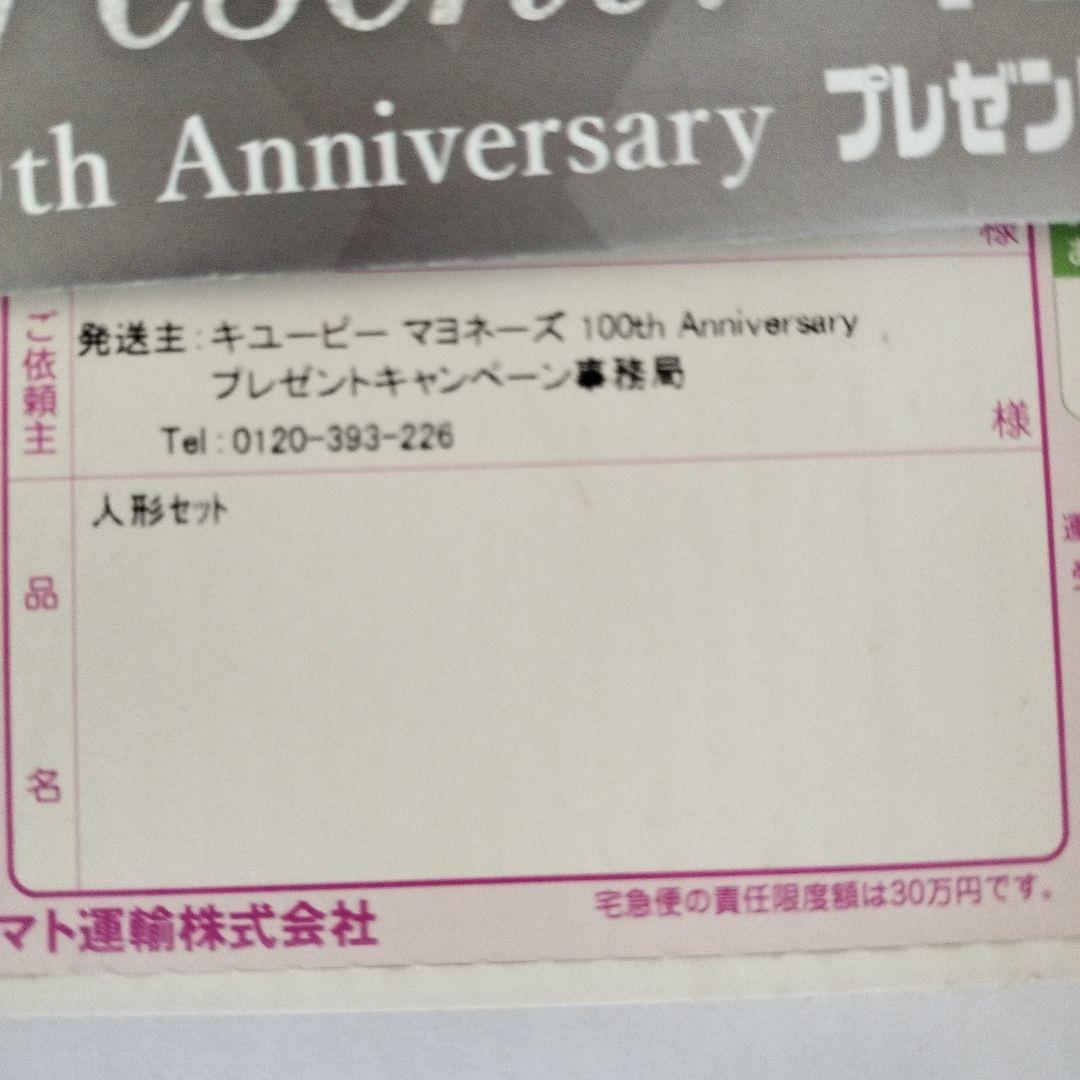 th Anniversary プレゼント
様
ご依頼主
発送主:キユーピー マヨネーズ 100th Anniversary
プレゼントキャンペーン事務局
Tel:0120-393-226
様
品名
人形セット
マト運輸株式会社
宅急便の責任限度額は30万円です。